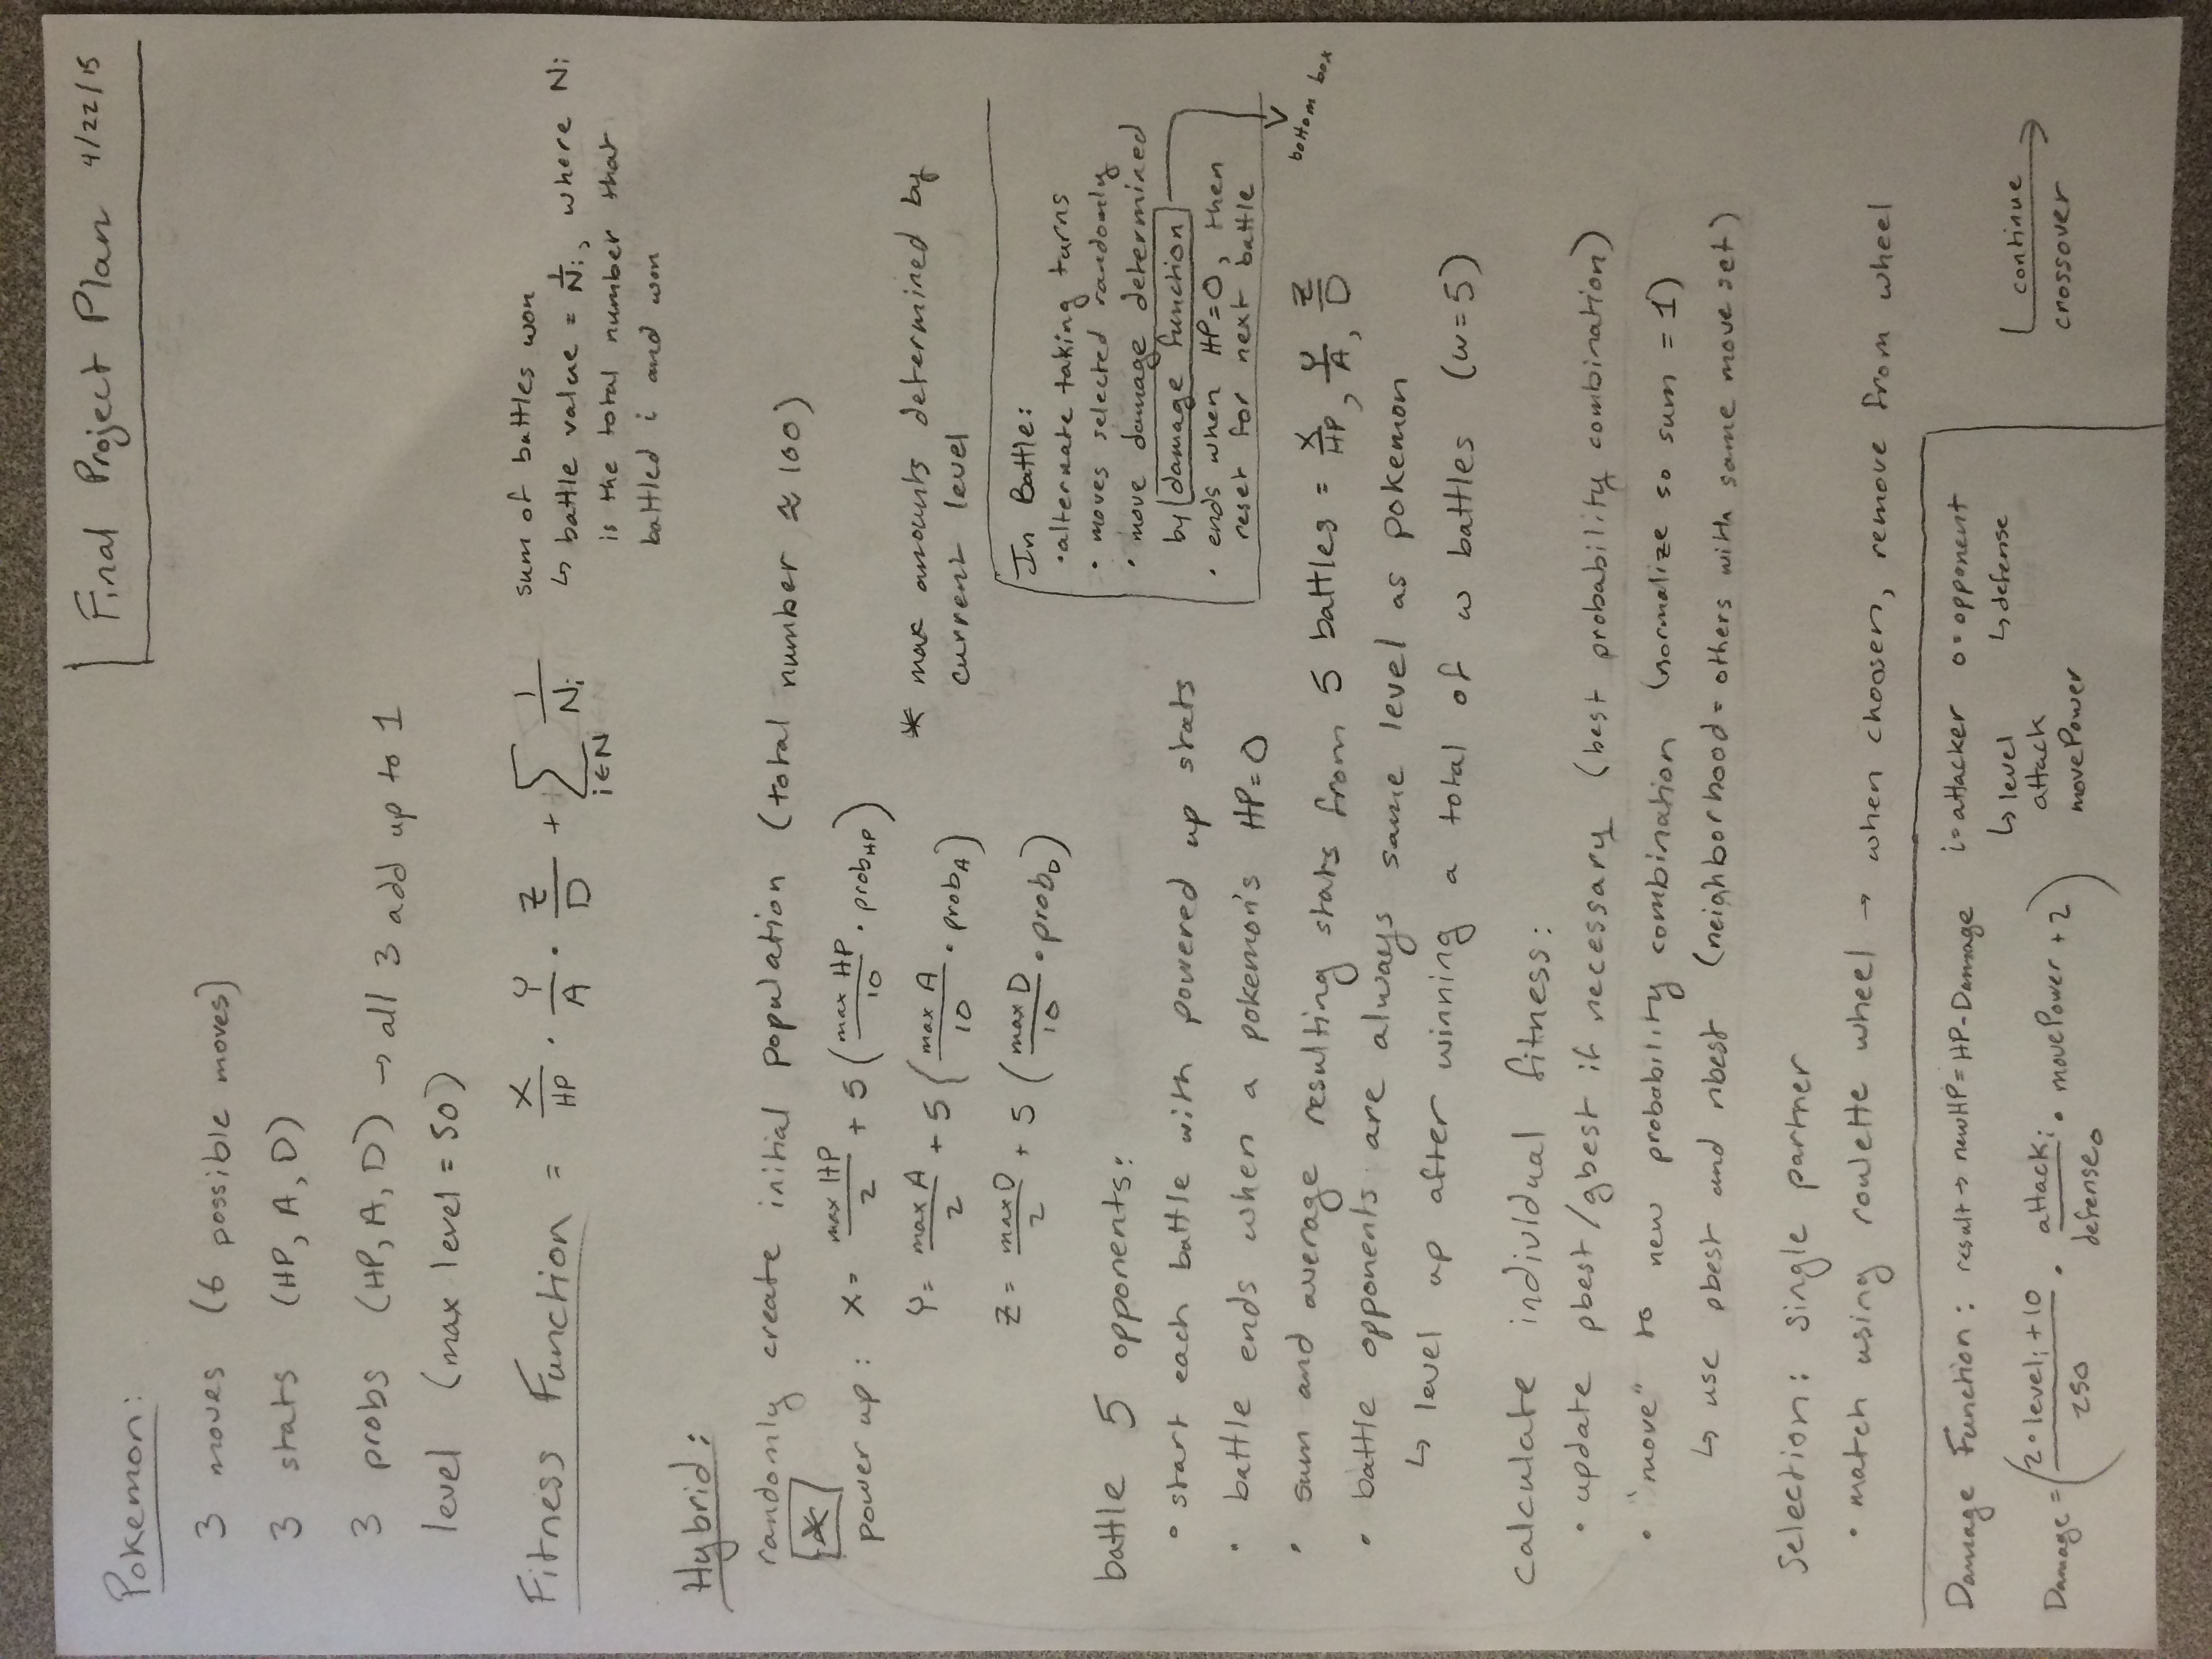 Final Project Plan 4/22/15
Pokemon:
3 moves (6 possible moves)
3 stats (HP, A, D)
3 probs (HP, A, D) → all 3 add up to 1
level (max level = 50)
Fitness Function = X/HP · Y/A · Z/D + Σ i∈N 1/Ni
sum of battles won
↳ battle value = 1/Ni, where Ni
is the total number that
battled i and won
Hybrid:
randomly create initial population (total number ≈ 100)
*
power up: X = max HP/2 + 5 (max HP/10 · probHP)
Y = max A/2 + 5 (max A/10 · probA)
Z = max D/2 + 5 (max D/10 · probD)
* max amounts determined by
current level
In Battle:
• alternate taking turns
• moves selected randomly
• move damage determined
by damage function
• ends when HP=0, then
reset for next battle
bottom box
battle 5 opponents:
• start each battle with powered up stats
• battle ends when a pokemon's HP=0
• sum and average resulting stats from 5 battles = X/HP, Y/A, Z/D
• battle opponents are always same level as pokemon
↳ level up after winning a total of w battles (w=5)
calculate individual fitness:
• update pbest/gbest if necessary (best probability combination)
• "move" to new probability combination (normalize so sum = 1)
↳ use pbest and nbest (neighborhood = others with same move set)
Selection: single partner
• match using roulette wheel → when choosen, remove from wheel
Damage Function: result → newHP = HP - Damage
Damage = (2·leveli + 10/250 · attacki/defenseo · movePower + 2)
i = attacker
↳ level
attack
movePower
o = opponent
↳ defense
continue
crossover